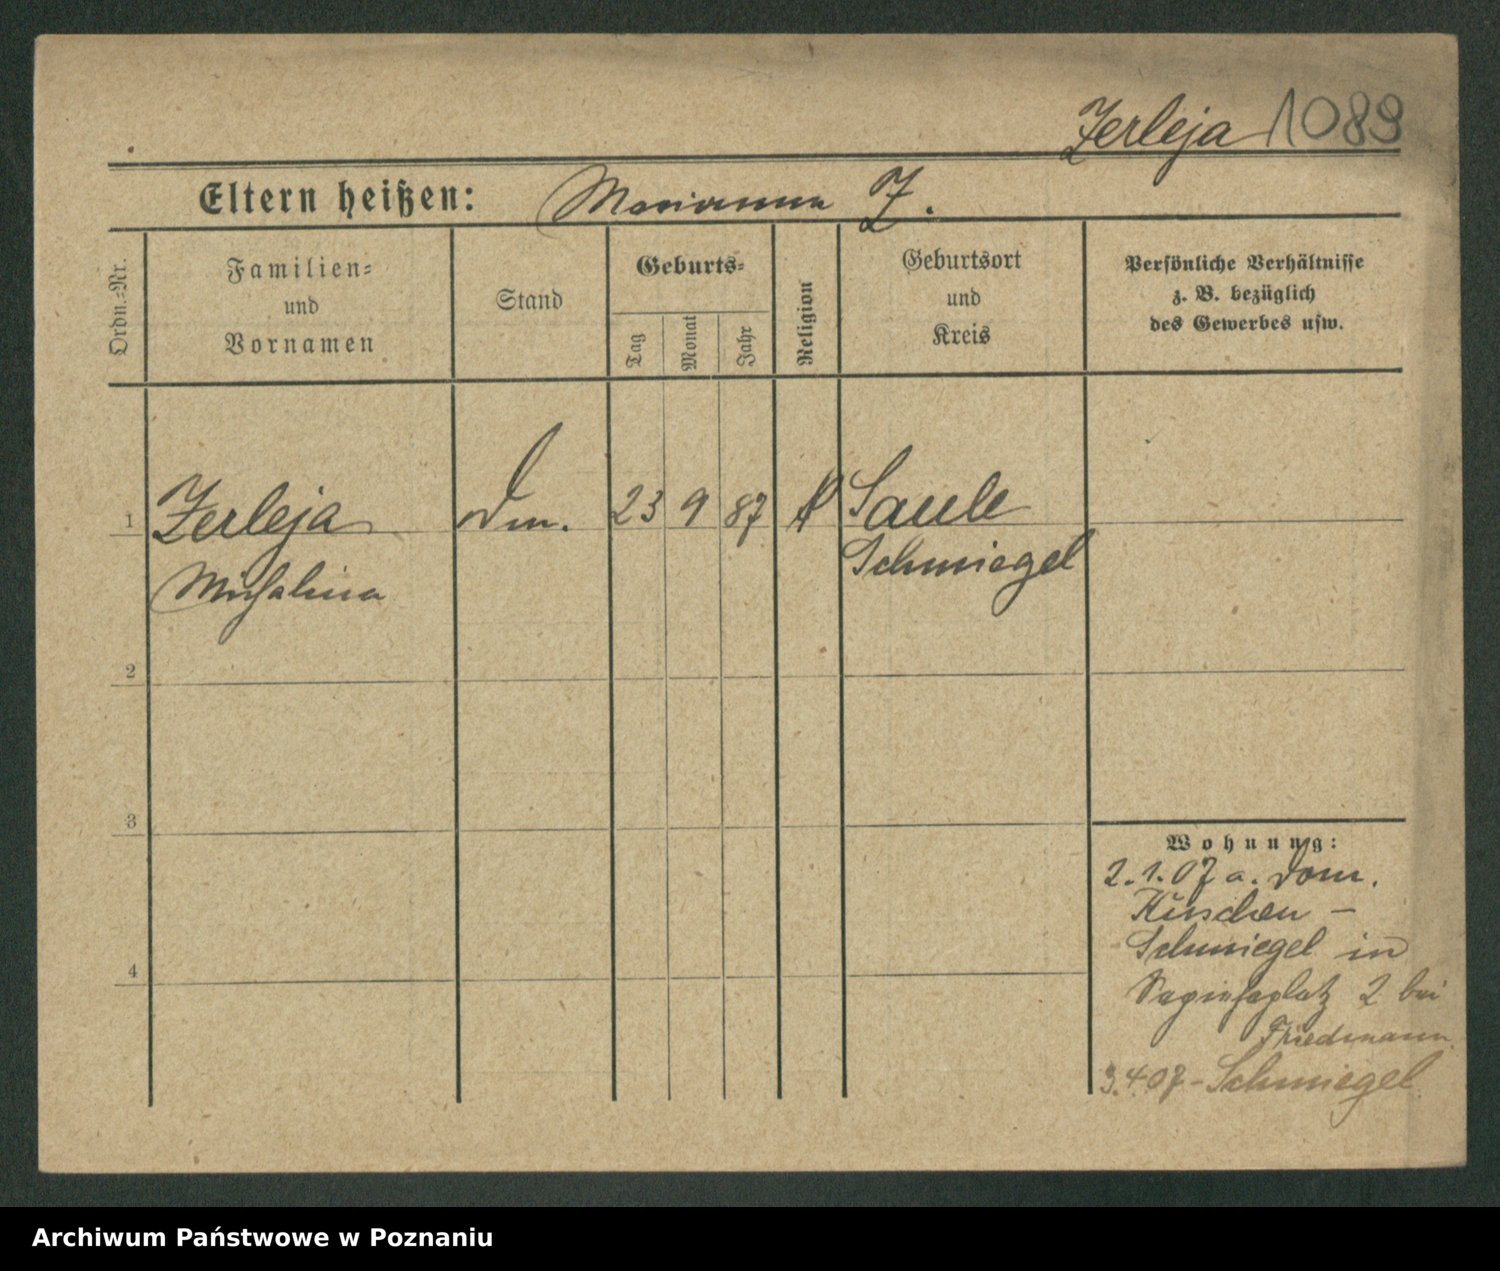 Zerleja 1089
Eltern heißen: Marianna Z.
Ordn.-Nr.
Familien-
und
Vornamen
Stand
Geburts-
Tag
Monat
Jahr
Religion
Geburtsort
und
Kreis
Persönliche Verhältnisse
z. B. bezüglich
des Gewerbes usw.
1 Zerleja Dm. 23 9 87 K Saule
Michalina Schmiegel
2
3
4
Wohnung:
2.1.07 a. Dom.
Schmiegel in
Sapiehaplatz 2 bei
Friedmann
3.4.07 - Schmiegel
Archiwum Państwowe w Poznaniu